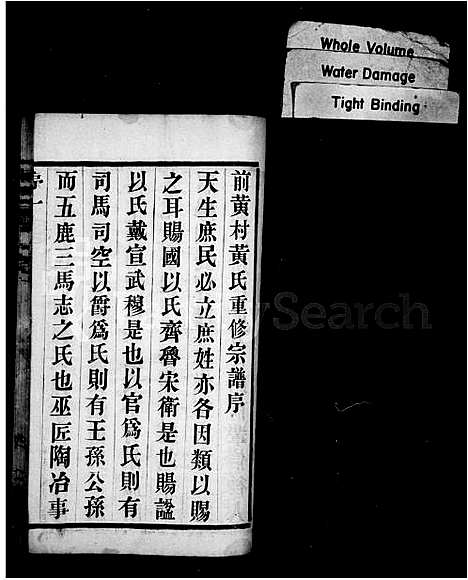 Whole Volume
Water Damage
Tight Binding
前黃村黃氏重修宗譜序
天生庶民必立庶姓亦各因類以賜
之耳賜國以氏齊魯宋衛是也賜諡
以氏戴宣武穆是也以官爲氏則有
司馬司空以爵爲氏則有王孫公孫
而五鹿三馬志之氏也巫匠陶冶事
序一
Search